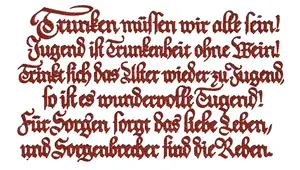 Trunken müssen wir alle sein!
Jugend ist Trunkenheit ohne Wein!
Trinkt sich das Alter wieder zu Jugend,
so ist es wundervolle Tugend!
Für Sorgen sorgt das liebe Leben,
und Sorgenbrecher sind die Reben.